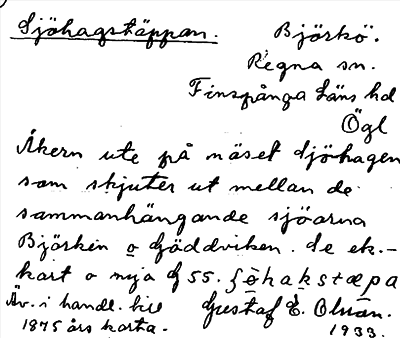 Sjöhagstäppan. Björkö.
Regna sn.
Finspånga Läns hd
Ögl
Åkern ute på näset Sjöhagen
som skjuter ut mellan de
sammanhängande sjöarna
Björken o Gäddviken. Se ek.-
kart o nyia G 55. ʃö̀hakstæpa
Äv. i handl. till Gustaf E. Olsson.
1875 års karta. 1933.